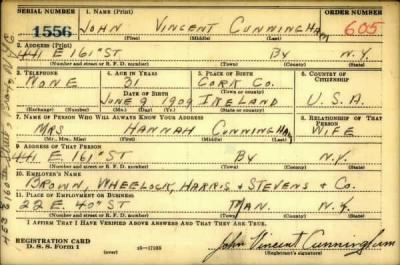 SERIAL NUMBER 1. NAME (Print) ORDER NUMBER
1556 JOHN VINCENT CUNNINGHAM 605
(First) (Middle) (Last)
2. ADDRESS (Print)
441 E. 161st ST BX N.Y.
(Number and street or R. F. D. number) (Town) (County) (State)
3. TELEPHONE 4. AGE IN YEARS 5. PLACE OF BIRTH 6. COUNTRY OF CITIZENSHIP
NONE 31 CORK CO.
DATE OF BIRTH
JUNE 9 1909 IRELAND U.S.A.
(Exchange) (Number) (Mo.) (Day) (Yr.) (State or country)
7. NAME OF PERSON WHO WILL ALWAYS KNOW YOUR ADDRESS 8. RELATIONSHIP OF THAT PERSON
MRS HANNAH CUNNINGHAM WIFE
(Mr., Mrs., Miss) (First) (Middle) (Last)
9. ADDRESS OF THAT PERSON
441 E. 161st ST BX N.Y.
(Number and street or R. F. D. number) (Town) (County) (State)
10. EMPLOYER'S NAME
BROWN, WHEELOCK, HARRIS & STEVENS & CO.
11. PLACE OF EMPLOYMENT OR BUSINESS
22 E. 40th ST MAN. N.Y.
(Number and street or R. F. D. number) (Town) (County) (State)
I AFFIRM THAT I HAVE VERIFIED ABOVE ANSWERS AND THAT THEY ARE TRUE.
REGISTRATION CARD
D. S. S. Form 1 (over) 16-17105 John Vincent Cunningham
(Registrant's signature)